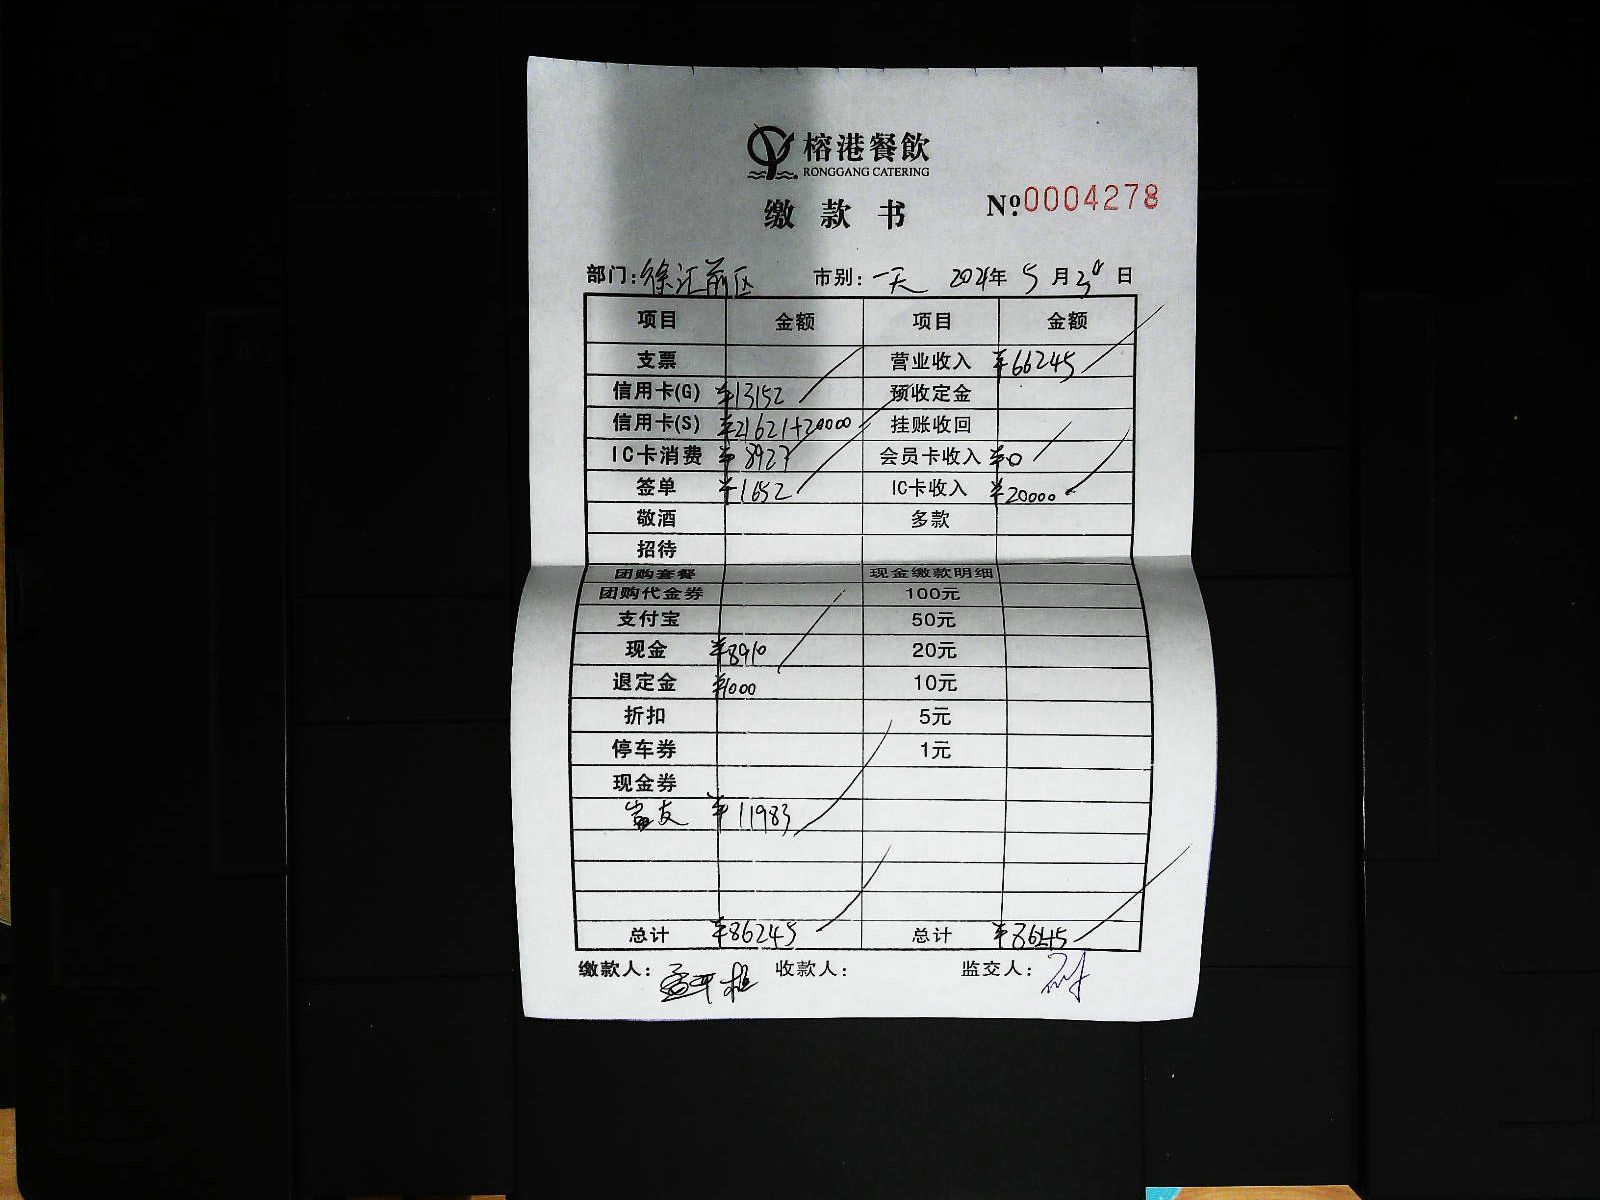 榕港餐飲
RONGGANG CATERING
缴款书 Nº.0004278
部门:徐汇前区 市别:一天 2021年5月30日
项目 金额 项目 金额
支票 营业收入 ¥66245
信用卡(G) ¥13152 预收定金
信用卡(S) ¥21621+20000 挂账收回
IC卡消费 ¥8927 会员卡收入 ¥0
签单 ¥1652 IC卡收入 ¥20000
敬酒 多款
招待
团购套餐 现金缴款明细
团购代金券 100元
支付宝 50元
现金 ¥8910 20元
退定金 ¥1000 10元
折扣 5元
停车券 1元
现金券
¥11983
总计 ¥86245 总计 ¥86245
缴款人: 收款人: 监交人: